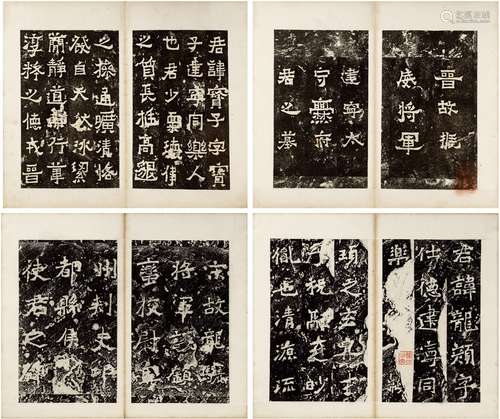 晉故振
威將軍
建寧太
守爨府
君之墓
君諱寶子字寶
子建寧同樂人
也君少稟瓌偉
之質長挺高邈
之操通曠清恪
發自天然冰潔
簡靜道兼行葦
淳粹之德戎晉
宋故龍驤
將軍護鎮
蠻校尉寧
州刺史邛
都縣侯爨
使君之碑
君諱龍顏字
仕德建寧同
樂
頊之玄胄才
子祝融之眇
胤也清源流